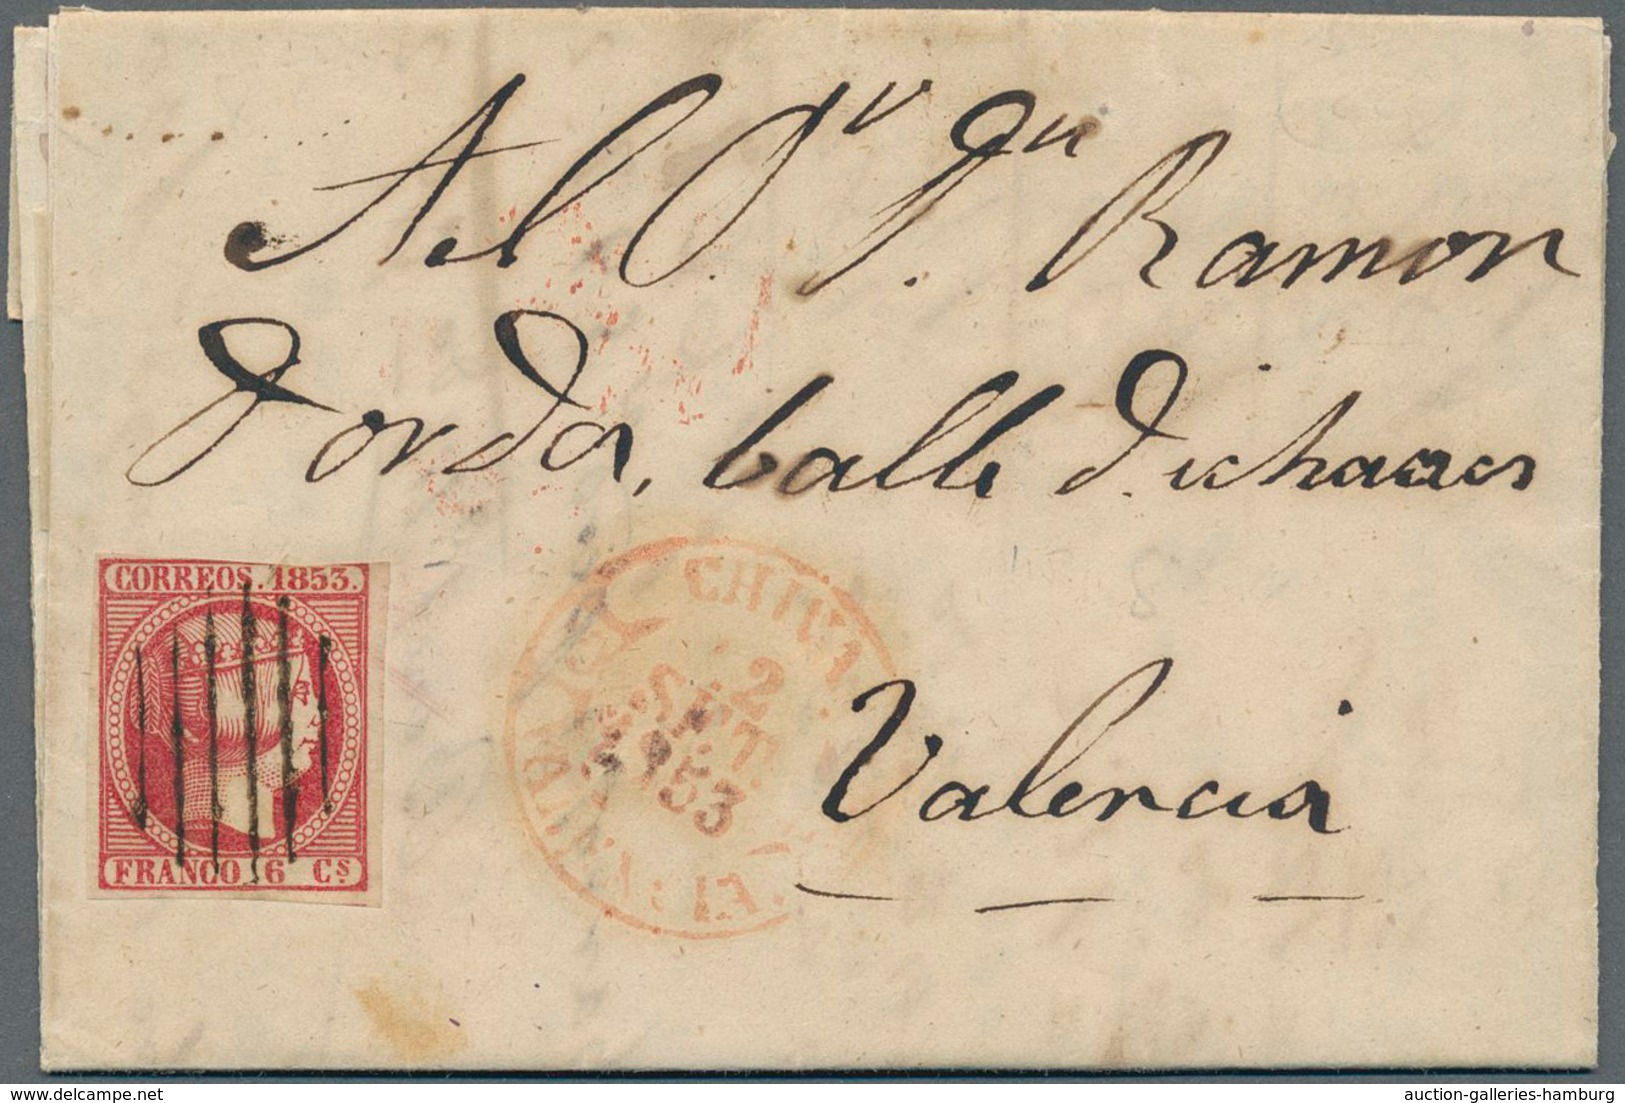 Al Sr. Dn. Ramon
Dorda, Calle d.
Valencia
CORREOS. 1853.
FRANCO 6 Cs
CHIVA
2
SET.
1853
VALENCIA.
delcampe.net
auction-galleries-hamburg